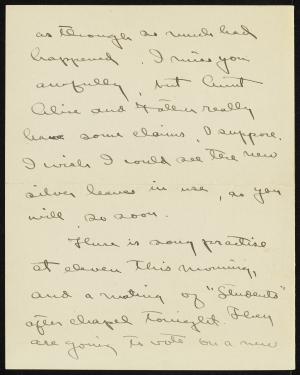 as through as much had
happened. I miss you
awfully, but Aunt
Alice and Father really
have some claims, I suppose.
I wish I could see the new
silver leaves in use, as you
will, so soon.
There is song practise
at eleven this morning,
and a meeting of "Students"
after chapel tonight. They
are going to vote on a new